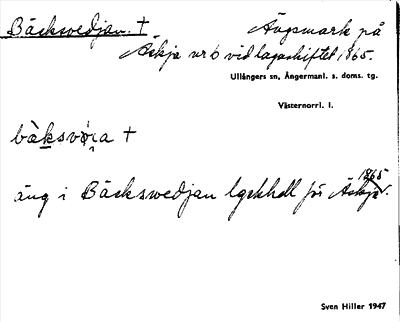 Bäckswedjan. † Ängsmark på
Äskja nr 6 vid lagaskiftet 1865.
Ullångers sn, Ångermanl. s. doms. tg.
Västernorrl. l.
bàksvø̀ra †
äng i Bäckswedjan lgskhdl för Äskja 1865.
Sven Hiller 1947